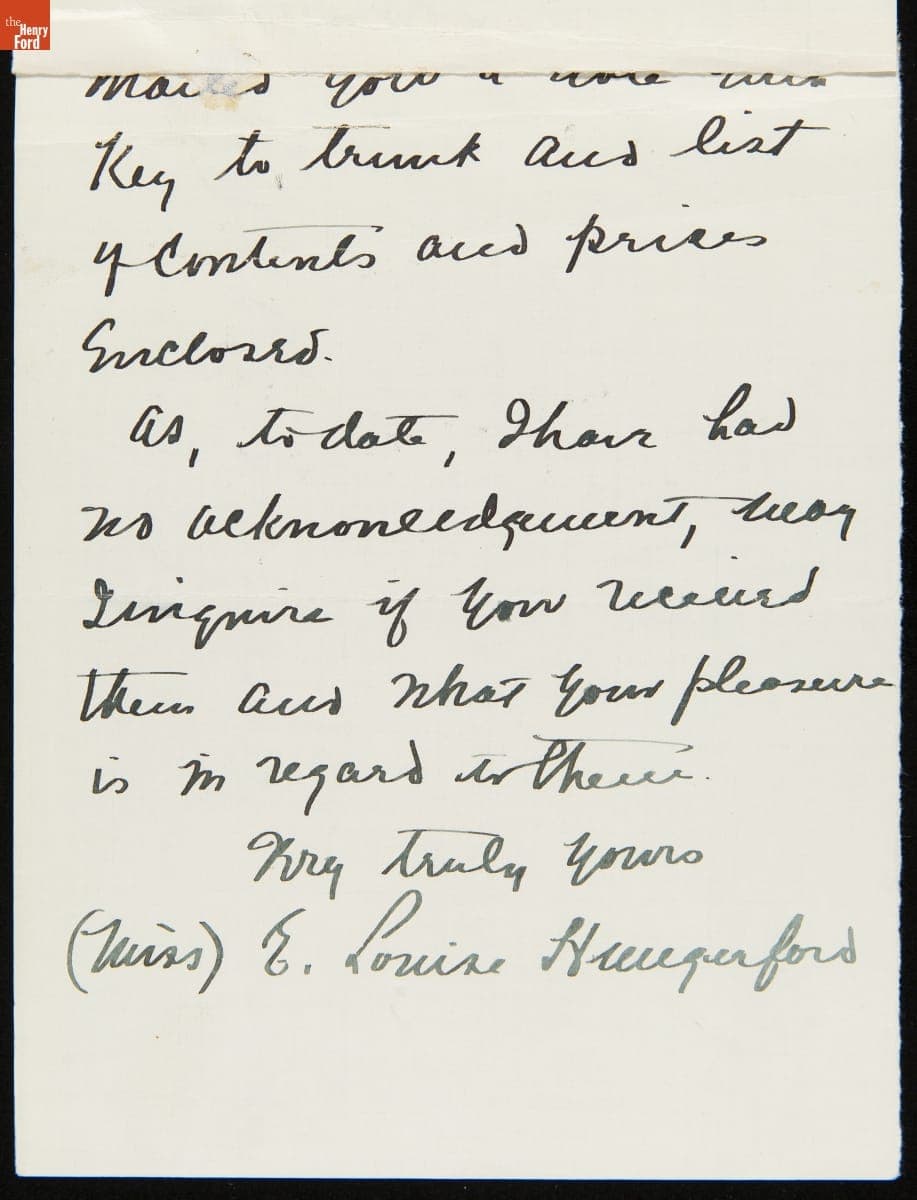 the
Henry
Ford
Mailed you a note with
Key to trunk and list
of Contents and prices
Enclosed.
As, to date, I have had
no acknowledgement, may
I inquire if you received
them and what your pleasure
is in regard to them.
Very truly yours
(Miss) E. Louise Hungerford